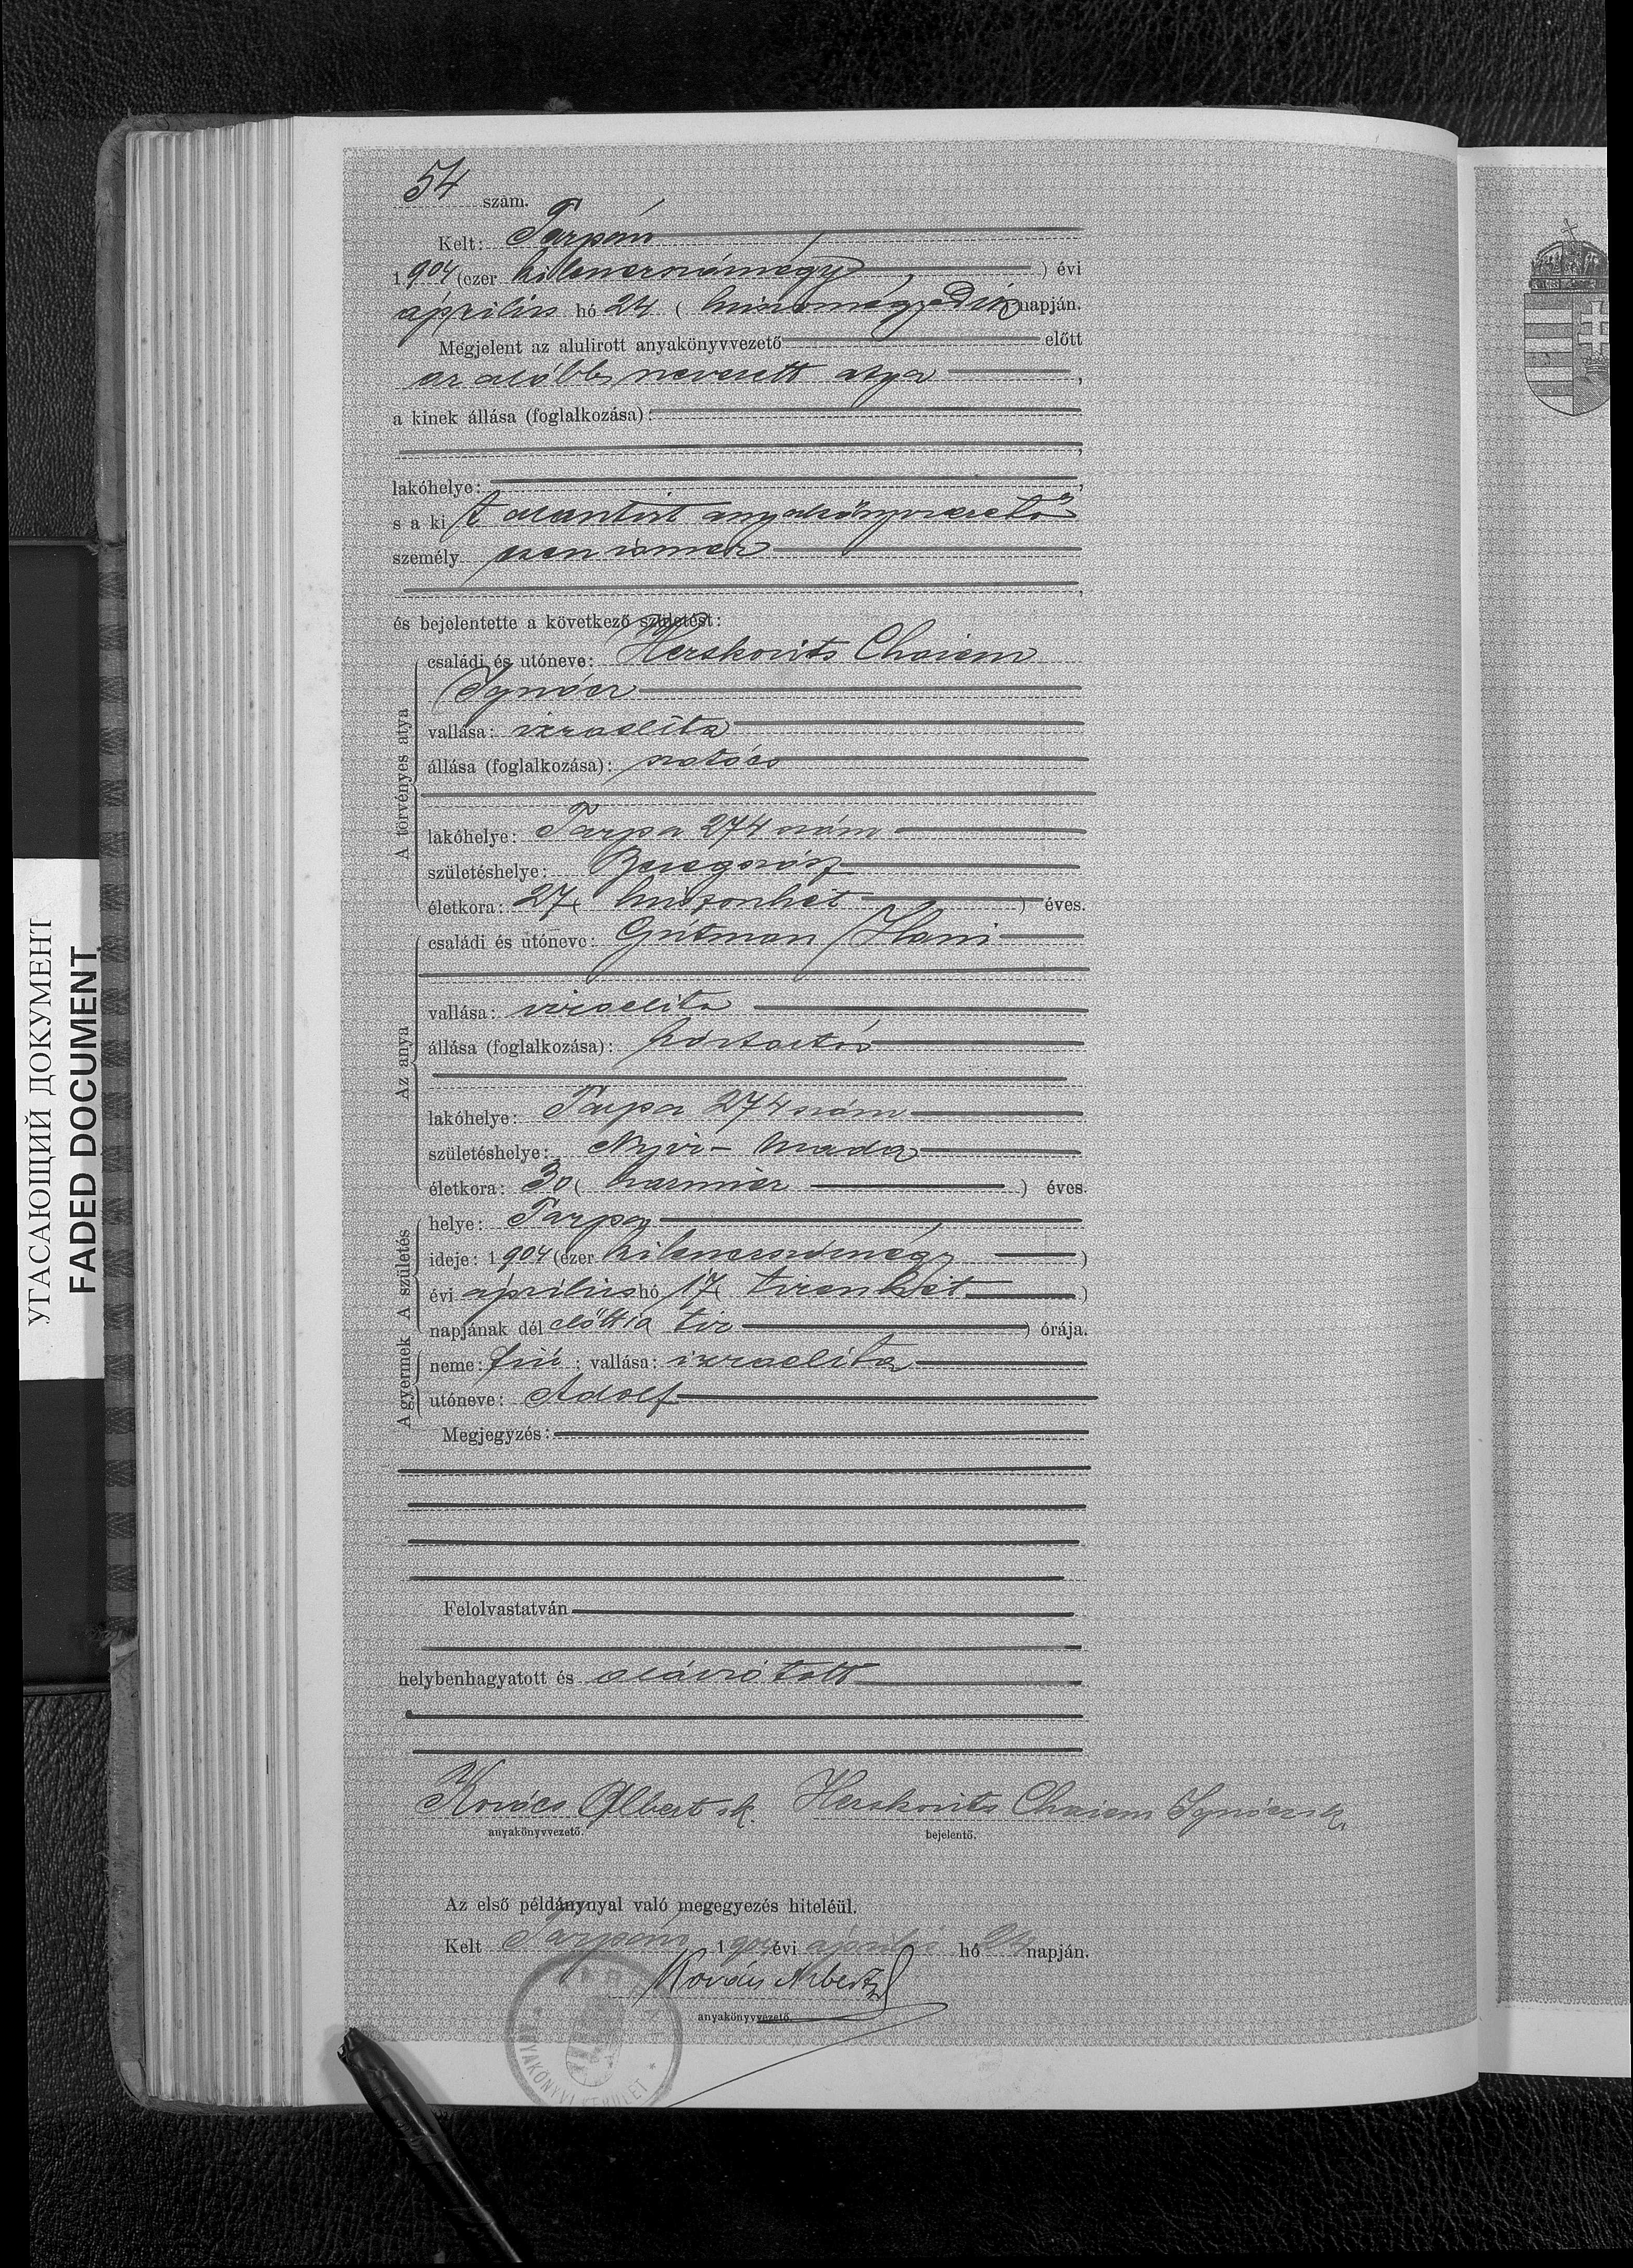 54 szám.
Kelt: Tarpán
1904 (ezer kilencszáznégy) évi
április hó 24 ( huszonnegyedik napján.
Megjelent az alulirott anyakönyvvezető előtt
az alább nevezett atya,
a kinek állása (foglalkozása):
lakóhelye:
s a kit alantirt anyakönyvvezető
személyesen ismer
és bejelentette a következő születést:
A törvényes atya
családi és utóneve: Herskovits Chaiem
Ignácz
vallása: izraelita
állása (foglalkozása): szatócs
lakóhelye: Tarpa 274 szám
születéshelye: Beregszász
életkora: 27 ( huszonhét ) éves.
Az anya
családi és utóneve: Gutman Hani
vallása: izraelita
állása (foglalkozása): háztartás
lakóhelye: Tarpa 274 szám
születéshelye: Nyir-mada
életkora: 30 ( harmincz ) éves.
A születés
helye: Tarpa
ideje: 1904 (ezer kilencszáznégy )
évi április hó 17 ( tizenhét )
napjának dél előtti ( tiz ) órája.
A gyermek
neme: fiú ; vallása: izraelita
utóneve: Adolf
Megjegyzés:
Felolvastatván
helybenhagyatott és aláiratott
Kovács Albert sk. Herskovits Chaiem Ignácz sk.
anyakönyvvezető. bejelentő.
Az első példánynyal való megegyezés hiteléül.
Kelt Tarpán, 1904 évi április hó 24 napján.
Kovács Albert
anyakönyvvezető.
ANYAKÖNYVI KERÜLET
УГАСАЮЩИЙ ДОКУМЕНТ
FADED DOCUMENT